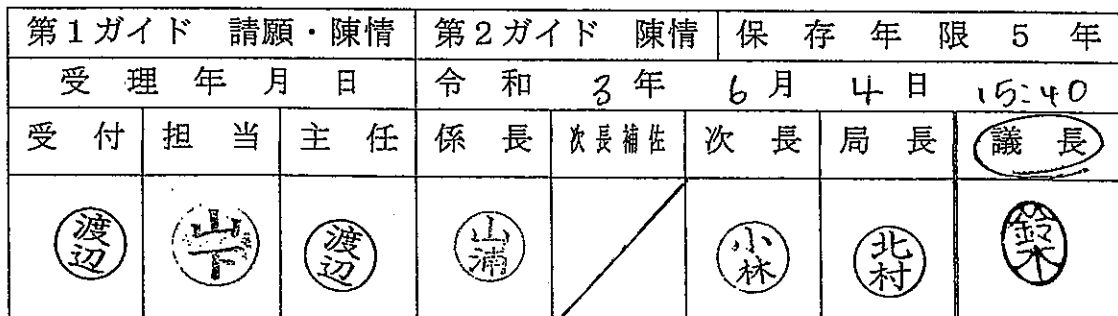 第1ガイド 請願・陳情 第2ガイド 陳情 保存年限5年
受理年月日 令和3年6月4日 15:40
受付 担当 主任 係長 次長補佐 次長 局長 議長
渡辺 山下 渡辺 山浦 小林 北村 鈴木